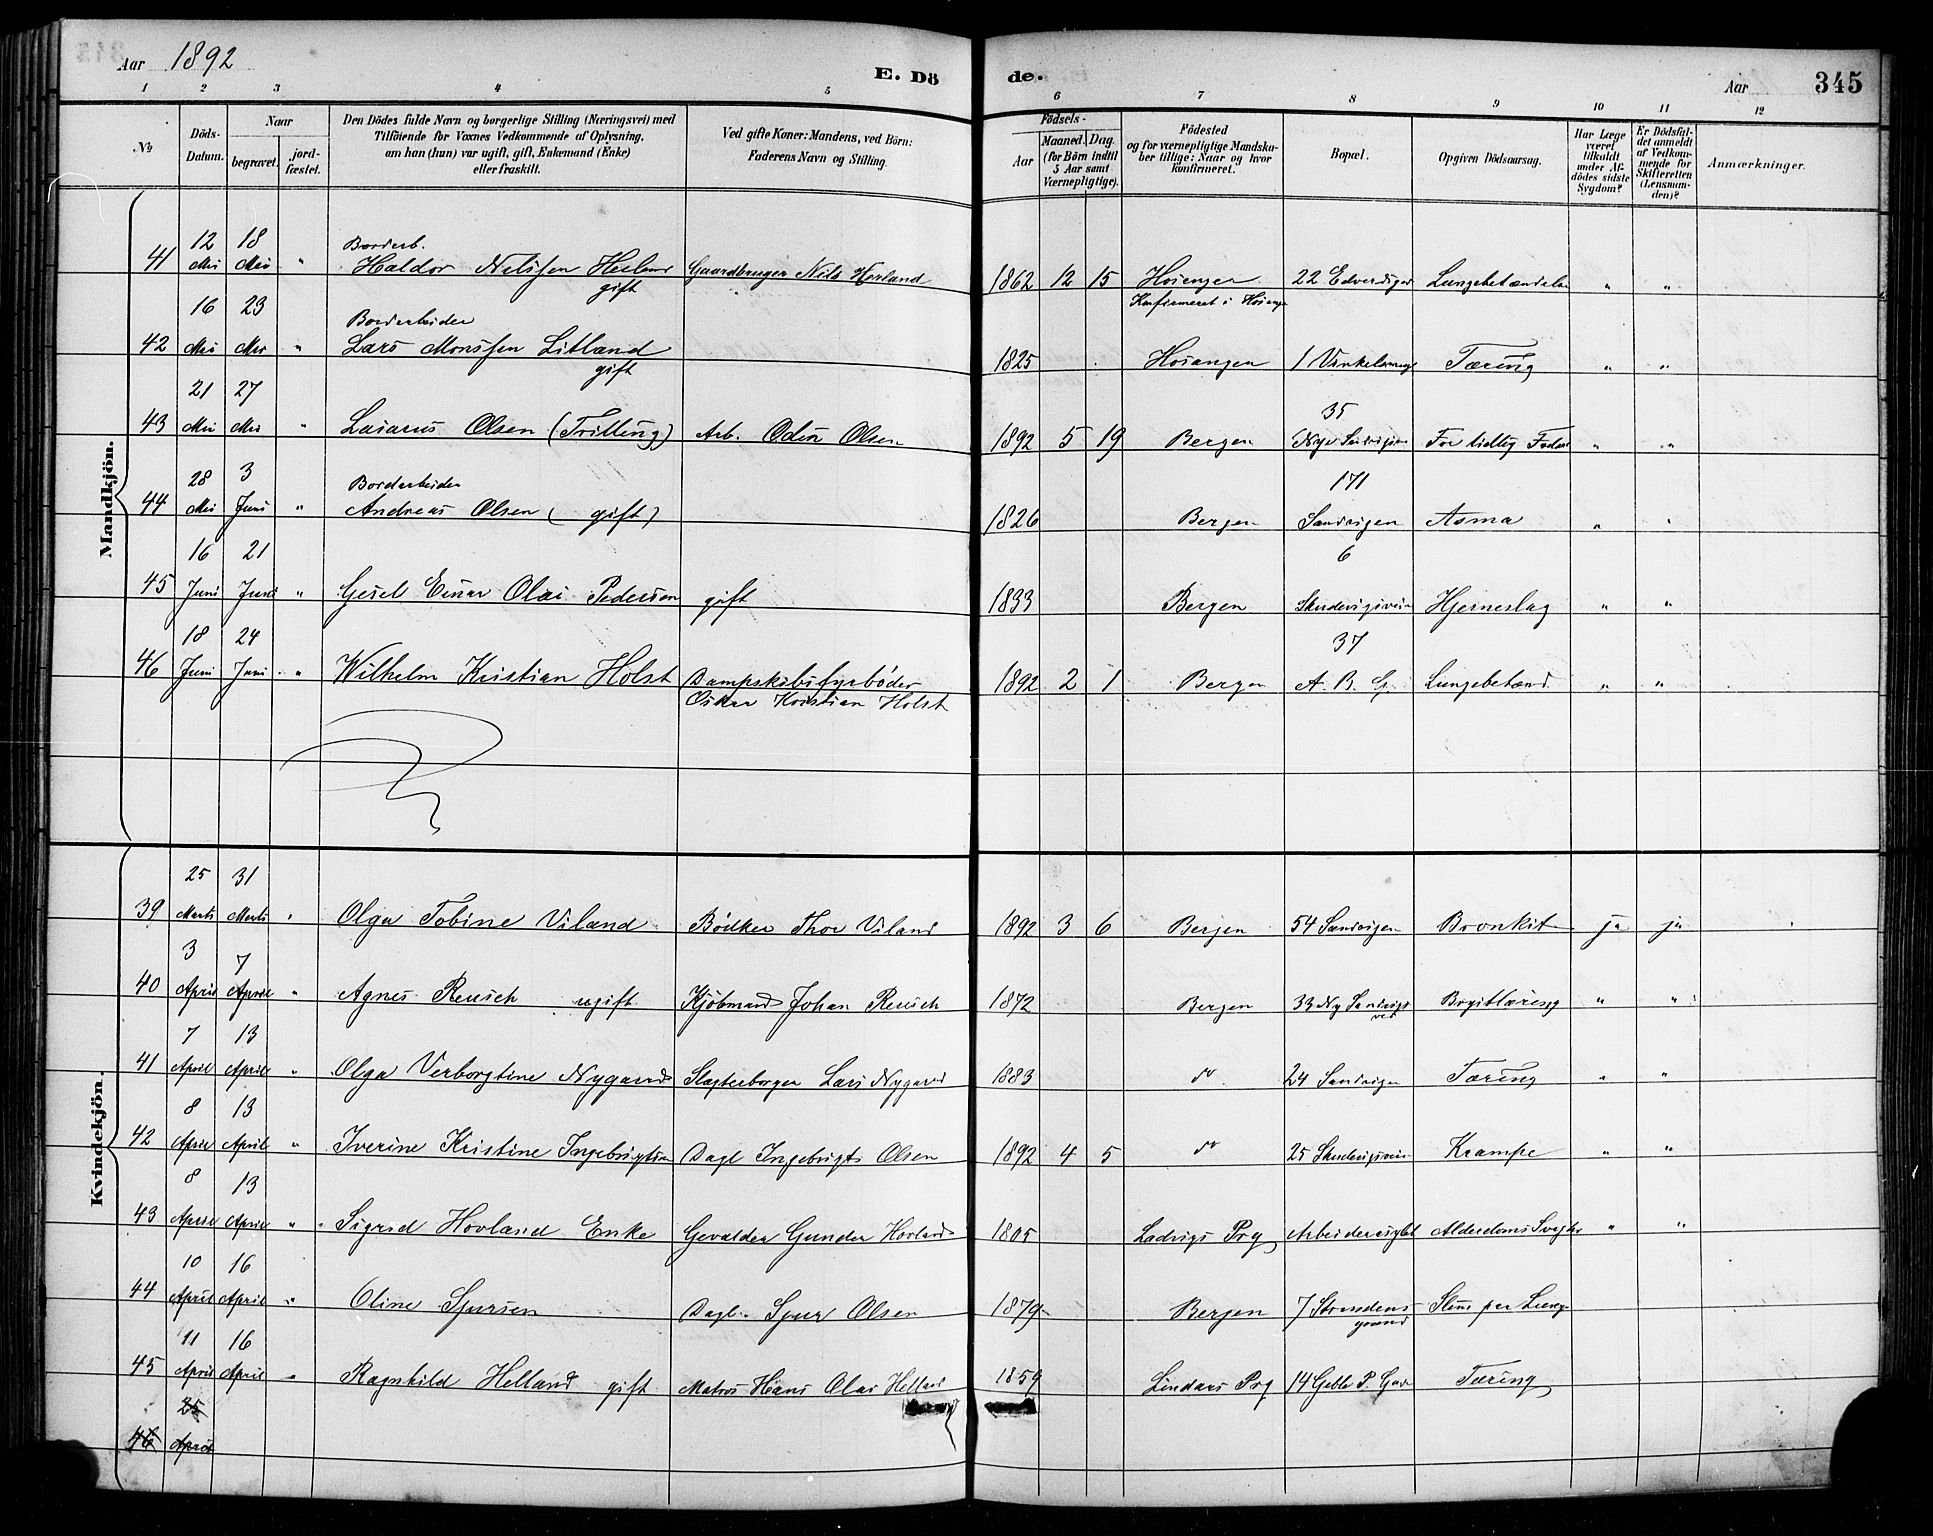 Aar 1892
E. Dö
de.
Aar
345
1 2 3 4 5 6 7 8 9 10 11 12
No
Döds-
Datum.
Naar
begravet.
jord-
fæstet.
Den Dödes fulde Navn og borgerlige Stilling (Næringsvei) med
Tilföiende for Voxnes Vedkommende af Oplysning,
om han (hun) var ugift, gift, Enkemand (Enke)
eller fraskilt.
Ved gifte Koner: Mandens, ved Börn:
Faderens Navn og Stilling.
Födsels-
Aar
Maaned. Dag.
(for Börn indtil
5 Aar samt
Værnepligtige).
Födested
og for værnepligtige Mandska-
ber tillige: Naar og hvor
konfirmeret.
Bopæl.
Opgiven Dödsaarsag.
Har Læge
været
tilkaldt
under Af-
dödes sidste
Sygdom?
Er Dödsfal-
det anmeldt
af Vedkom-
mende for
Skifteretten
(Lensman-
den)?
Anmærkninger.
Mandkjön.
12 18 Bordarb.
41 Mai Mai " Haldor Nilssen Gaardbruger Nils Herland 1862 12 15 Hosanger 22 Lungebetændelse " "
gift Konfirmeret i Hosanger
16 23 Bordarbeider
42 Mai Mai " Lars Monssen Litland 1825 Hosanger 1 Tæring " "
gift
21 27 35
43 Mai Mai " Lasarus Olsen (Trilling) Arb. Odin Olsen 1892 5 19 Bergen Nye Sandvigsv For tidlig Födsel " "
28 3 Bordarbeider 171
44 Mai Juni " Andreas Olsen (gift) 1826 Bergen Sandvigen Asma " "
16 21 6
45 Juni Juni " Gesel Einar Olai Pedersen gift 1833 Bergen Skudevigsveien Hjerneslag " "
18 24 37
46 Juni Juni " Wilhelm Kristian Holst Dampskibsfyrböder 1892 2 1 Bergen A. B. G. Lungebetænd. " "
Oskar Kristian Holst
Kvindekjön.
25 31
39 Marts Marts " Olga Tobine Viland Bödker Thor Viland 1892 3 6 Bergen 54 Sandvigen Bronkit ja ja
3 7
40 April April " Agnes Reusch ugift Kjöbmand Johan Reusch 1872 Bergen 33 Ny Sandvigs Brysttæring " "
vei
7 13
41 April April " Olga Verborgtine Nygaard Slagterborger Lars Nygaard 1883 do 24 Sandvigen Tæring " "
8 13
42 April April " Iverine Kristine Ingebrigtsen Dagl Ingebrigt Olsen 1892 4 5 do 25 Skudevigsveien Krampe " "
8 13
43 April April " Sigrid Hovland Enke Gevaldier Gunder Hovland 1805 Ladvigs Prg Alderdoms Svaghed " "
10 16
44 April April " Oline Sjursen Dagl. Sjur Olsen 1879 Bergen 7 Strandens Slim paa Lunge
11 16
45 April April " Ragnhild Helland gift Matros Hans Olai Helland 1859 Lindaas Prg 14 Geble P. Gade Tæring
25
46 April